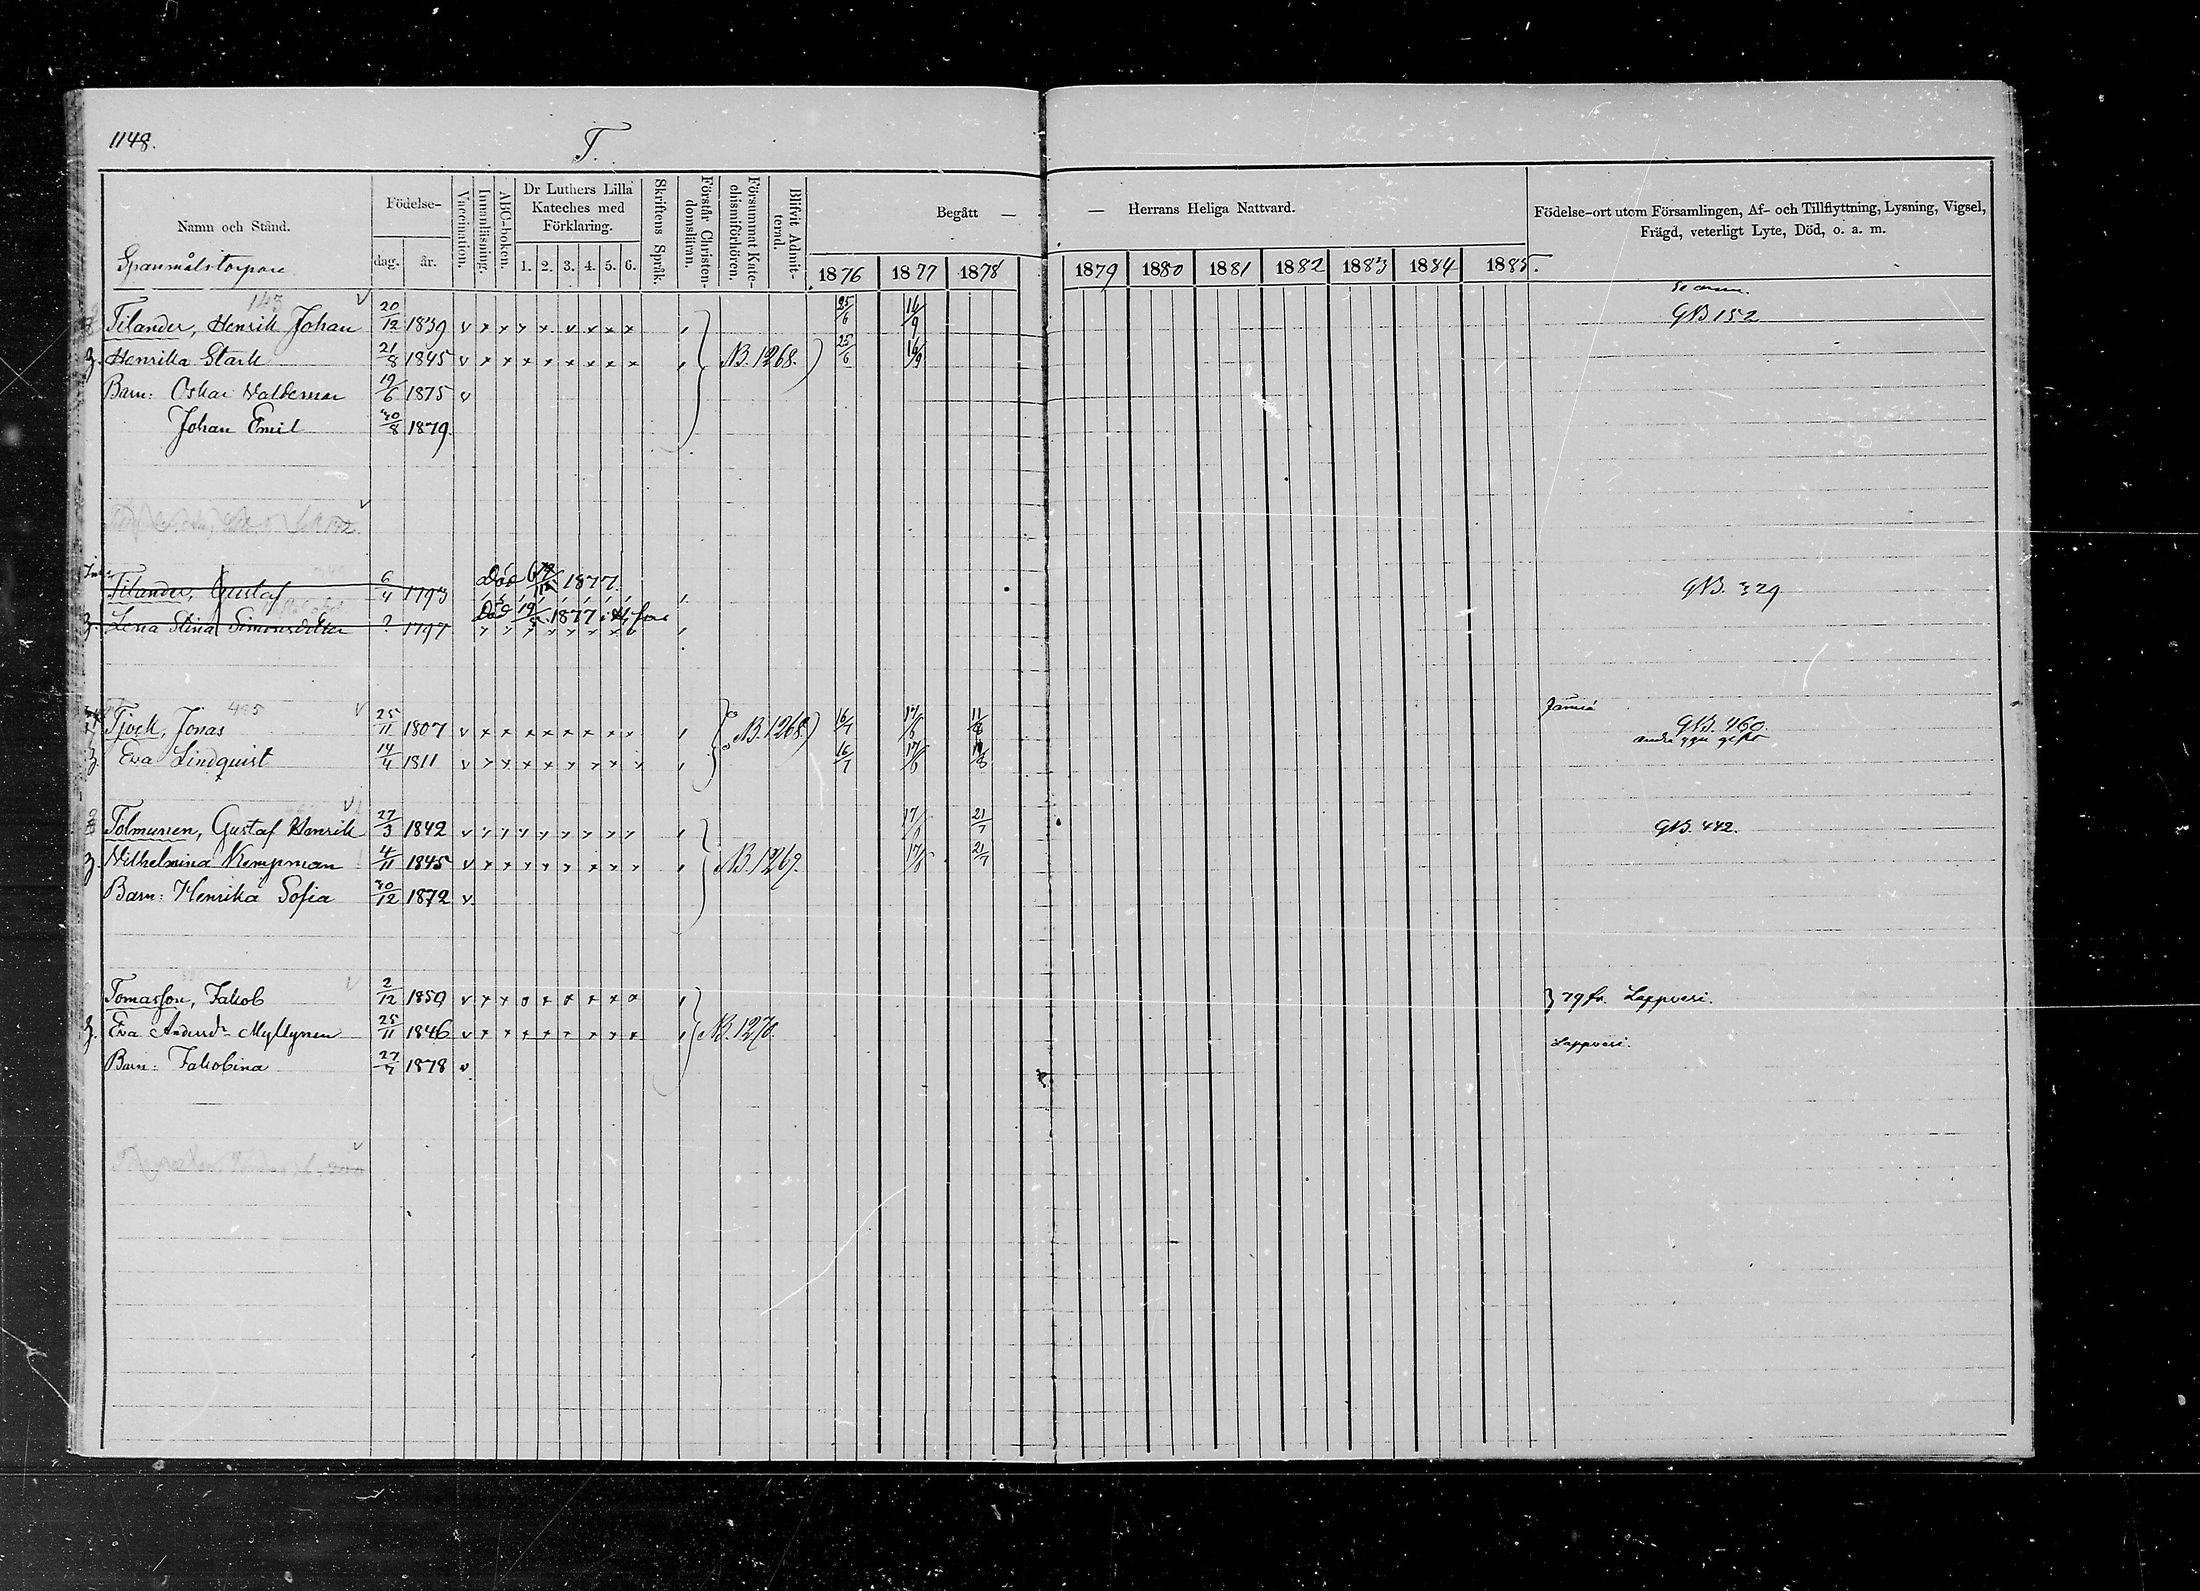 1148.
T.
Namn och Stånd.
Födelse-
dag.
år.
Vaccination.
Innanläsning.
ABC-boken.
Dr Luthers Lilla Kateches med Förklaring.
1. 2. 3. 4. 5. 6.
Skriftens Språk.
Förstår Christendomsläran.
Försummat Katechismiförhören.
Blifvit Admitterad.
Begått —
— Herrans Heliga Nattvard.
1876 1877 1878
1879 1880 1881 1882 1883 1884 1885.
Födelse-ort utom Församlingen, Af- och Tillflyttning, Lysning, Vigsel,
Frägd, veterligt Lyte, Död, o. a. m.
Spanmålstorpare
143
Tilander, Henrik Johan 20/12 1839 v x x x x v x x x 25/6 16/9 GB 152
Henrika Stark 21/8 1845 v x x x x x x x x NB. 1268. 25/6 16/9
Barn: Oskar Valdemar 19/6 1875 v
Johan Emil 30/8 1879.
Tilander, Gustaf 6/4 1793 Död 1877. GB. 329
Lena Stina Simonsdotter ? 1797 Död 19/5 1877 i H:fors
495
Tjock, Jonas 25/11 1807 v x x x x x x x x NB. 1268 16/7 17/6 11/8 GB. 460.
andra ggn gift
Eva Lindquist 14/4 1811 v x x x x x x x x 16/7 17/6
Tolmunen, Gustaf Henrik 27/3 1842 v 17/6 21/7 GB. 442.
Vilhelmina Kempman 4/11 1845 v x x x x x x x x NB. 1269. 17/6 21/7
Barn: Henrika Sofia 30/12 1872 v
Tomasson, Jakob 2/12 1850 v x x o x x x x o } 79 fr. Lappvesi.
Eva Andersdr Myllynen 25/11 1846 v x x x x x x x x NB. 1270. Lappvesi.
Barn: Jakobina 27/7 1878 v